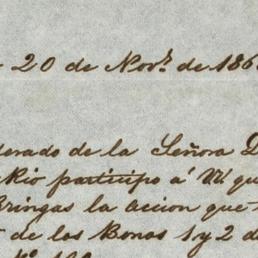 20 de Nov.r de 186
derado de la Señora D
Rio participo á W qu
Bringas la accion que
de los Bonos 1 y 2 d